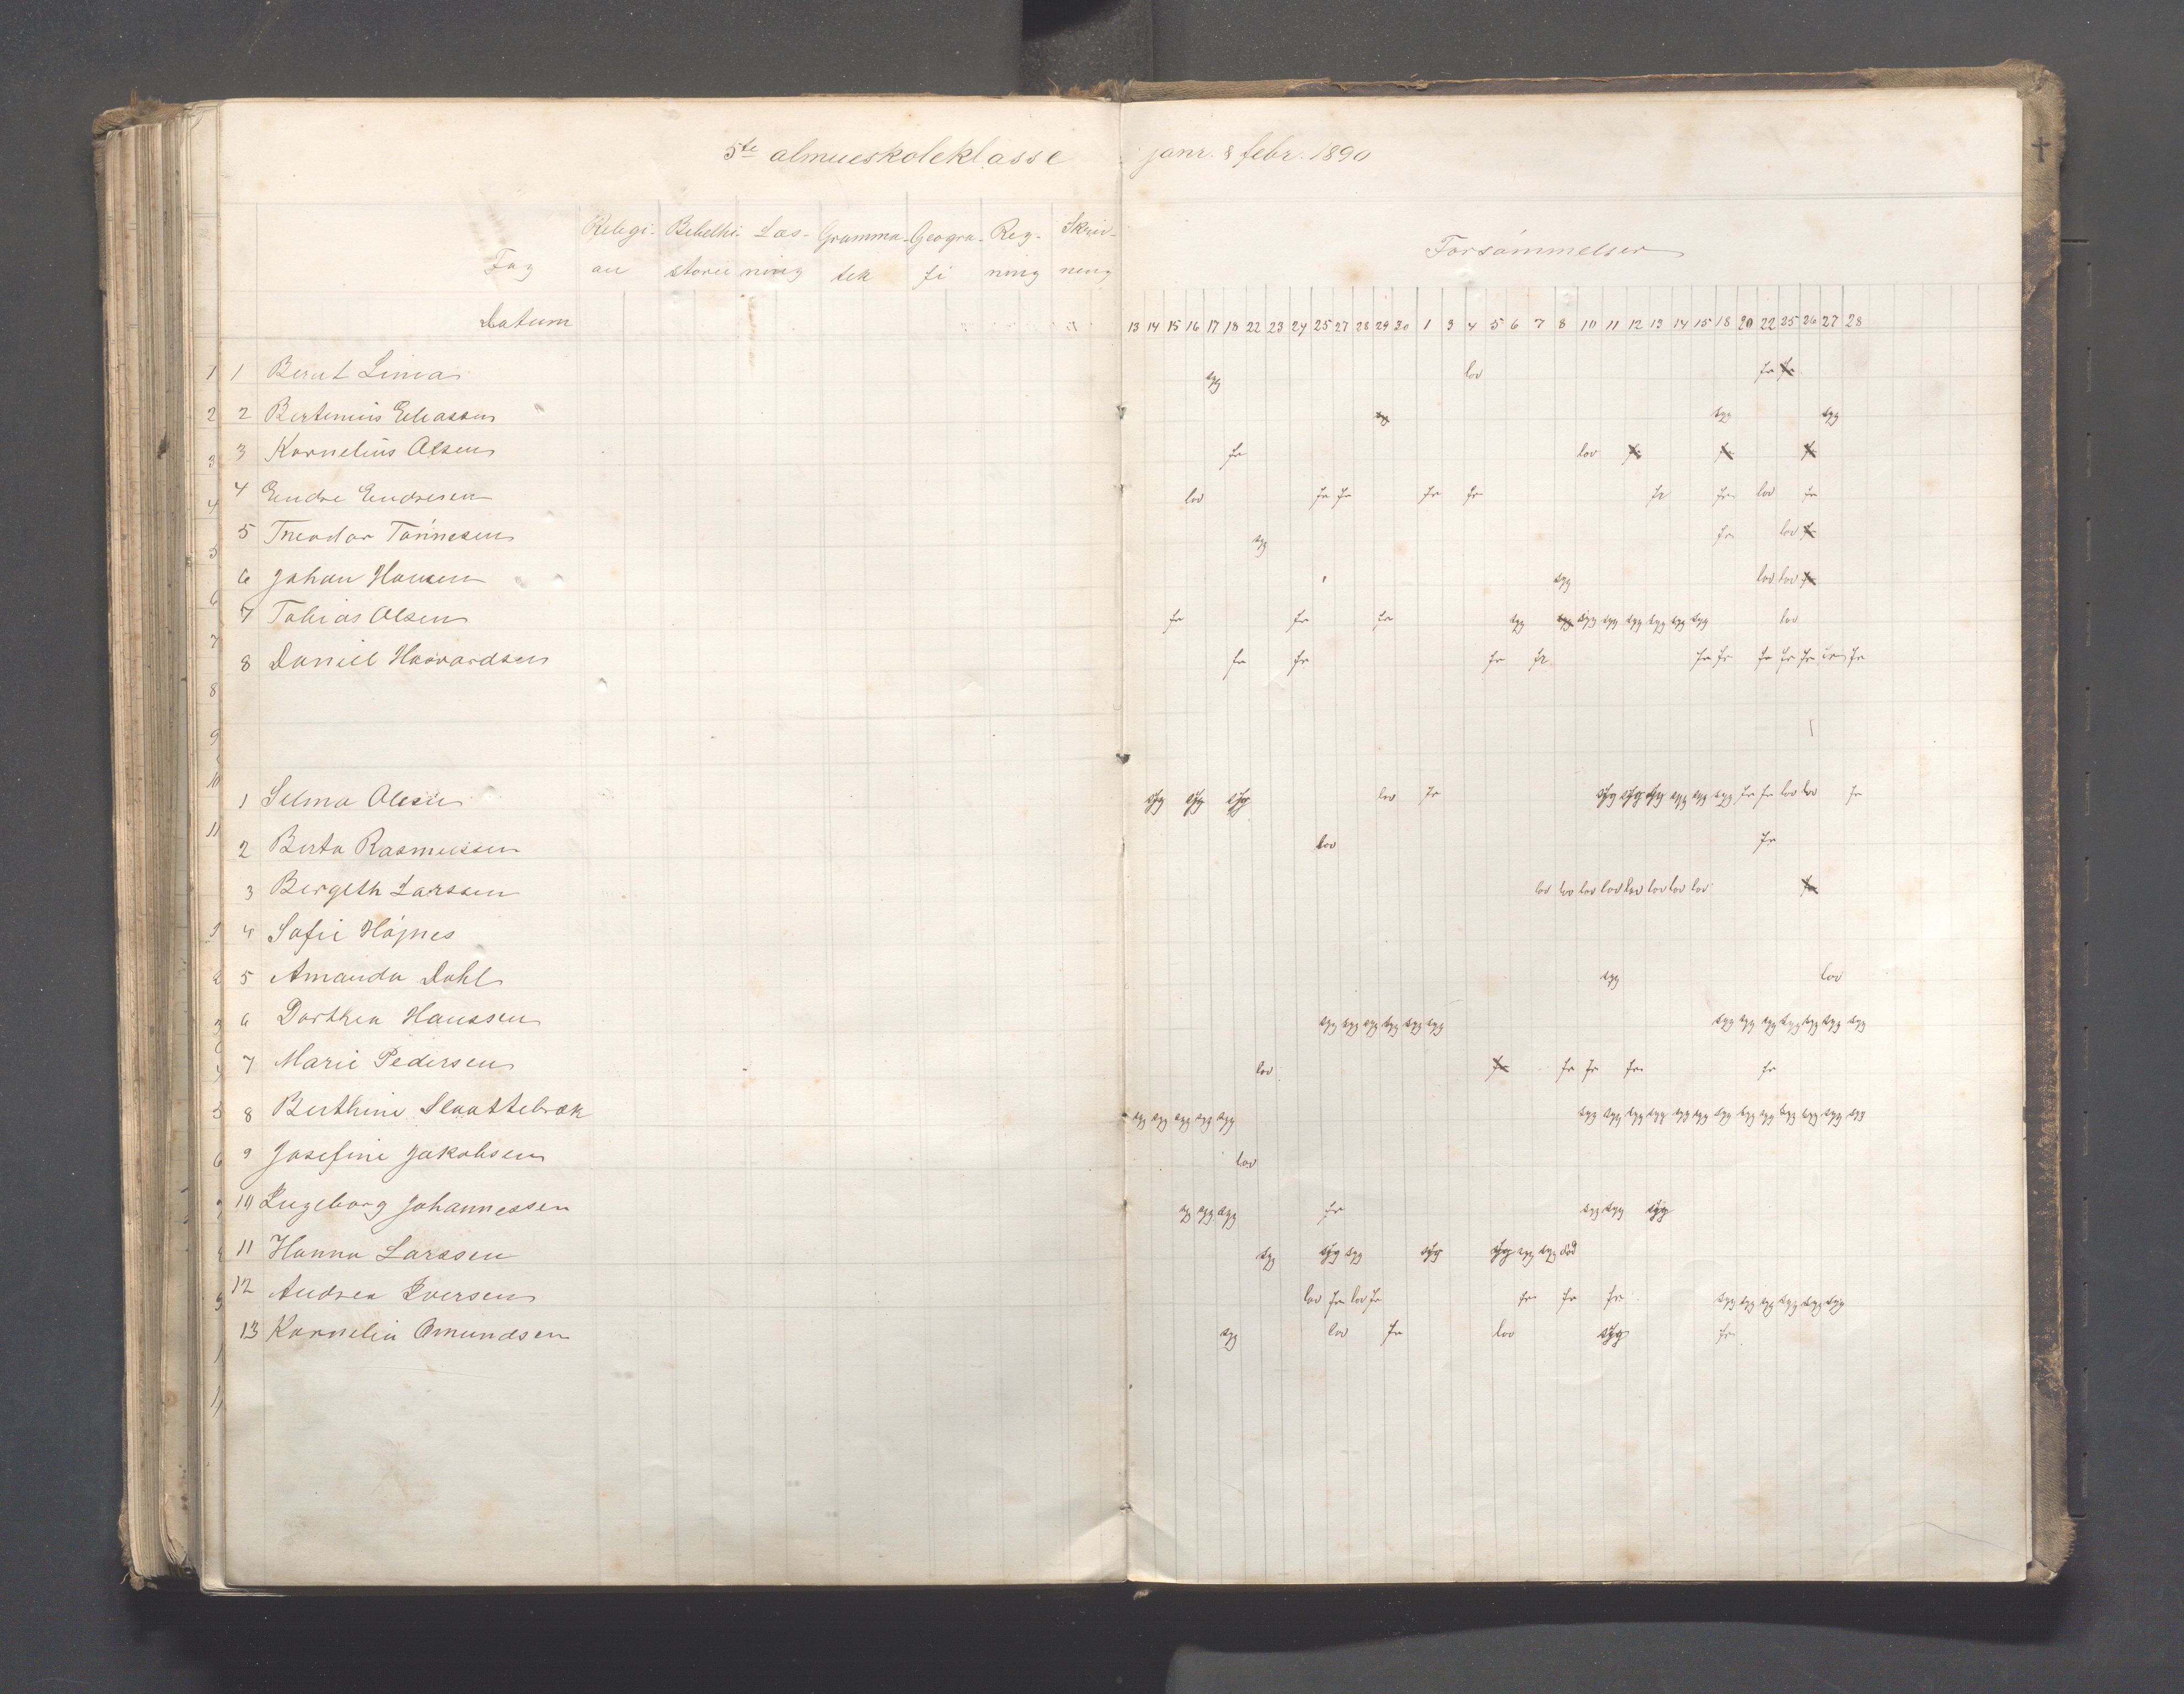 5te almueskoleklasse janr. & febr. 1890
Religi- Bibelhi- Læs- Gramma- Geogra- Reg- Skriv-
Fag on storie ning tik fi ning ning
Forsømmelser
Datum 13 14 15 16 17 18 22 23 24 25 27 28 29 30 1 3 4 5 6 7 8 10 11 12 13 14 15 18 20 22 25 26 27 28
1 1 Bernt Lima syg lov fr fr
2 2 Bertinius Eliassen syg syg syg
3 3 Kornelius Olsen fr lov fr fr fr
4 4 Endre Endresen lov fr fr fr fr fr fr lov fr
5 5 Theodor Tønnesen syg fr lov fr
6 6 Johan Hansen syg lov lov fr
7 7 Tobias Olsen fr fr fr syg syg syg syg syg syg syg syg lov
8 8 Daniel Haavardsen fr fr fr fr fr fr fr fr fr fr
9
10
1 Selma Olsen syg syg syg lov fr syg syg syg syg syg syg fr fr lov lov fr
11
2 Berta Rasmussen lov fr
3 Bergeth Larssen lov lov lov lov lov lov lov lov fr
4 Sofie Højnes
5 Amanda Dahl syg lov
6 Dorthea Hanssen syg syg syg syg syg syg syg syg syg syg syg syg syg
7 Marie Pedersen lov fr fr fr fr fr
8 Berthine Slaattebræk syg syg syg syg syg syg syg syg syg syg syg syg syg syg syg syg syg syg
9 Josefine Jakobsen lov
10 Ingeborg Johannessen syg syg syg fr syg syg syg
11 Hanna Larssen syg syg syg syg syg syg syg død
12 Andrea Iversen lov fr lov fr fr fr fr syg syg syg syg syg syg
13 Kornelia Omundsen syg lov fr lov syg fr